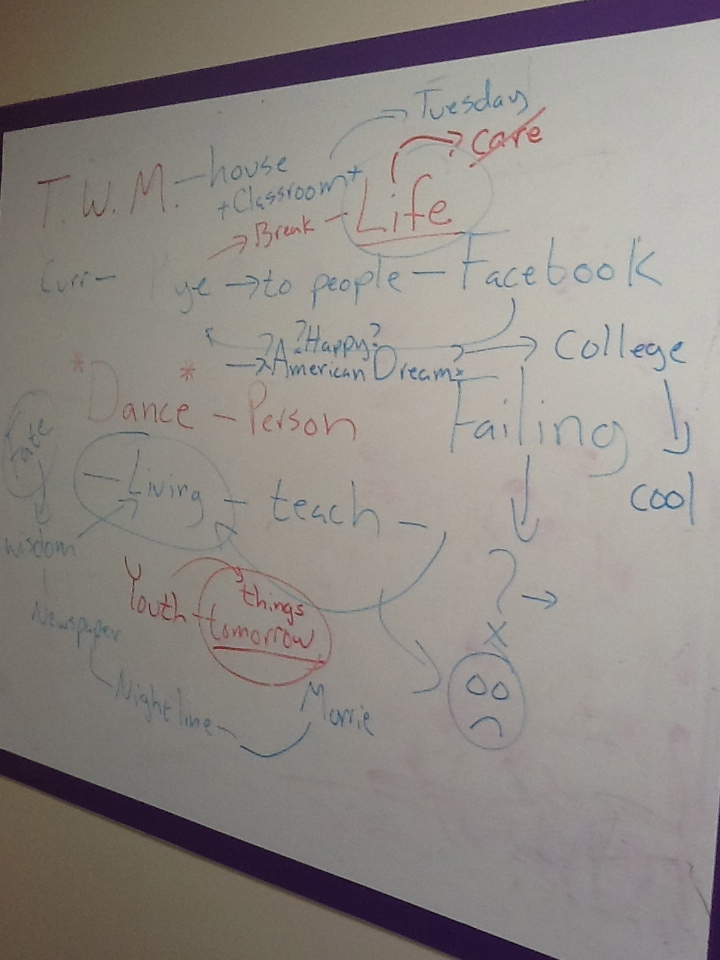 Tuesday
care
T.W.M. - house
+ Classroom +
→ Break - Life
Curr- ye → to people - Facebook
?Happy?
→ ?American Dream? → College
*Dance* - Person
Failing
cool
Fate
- Living - teach -
wisdom
?→
x
things
Youth - tomorrow
Newspaper
Nightline -
Morrie